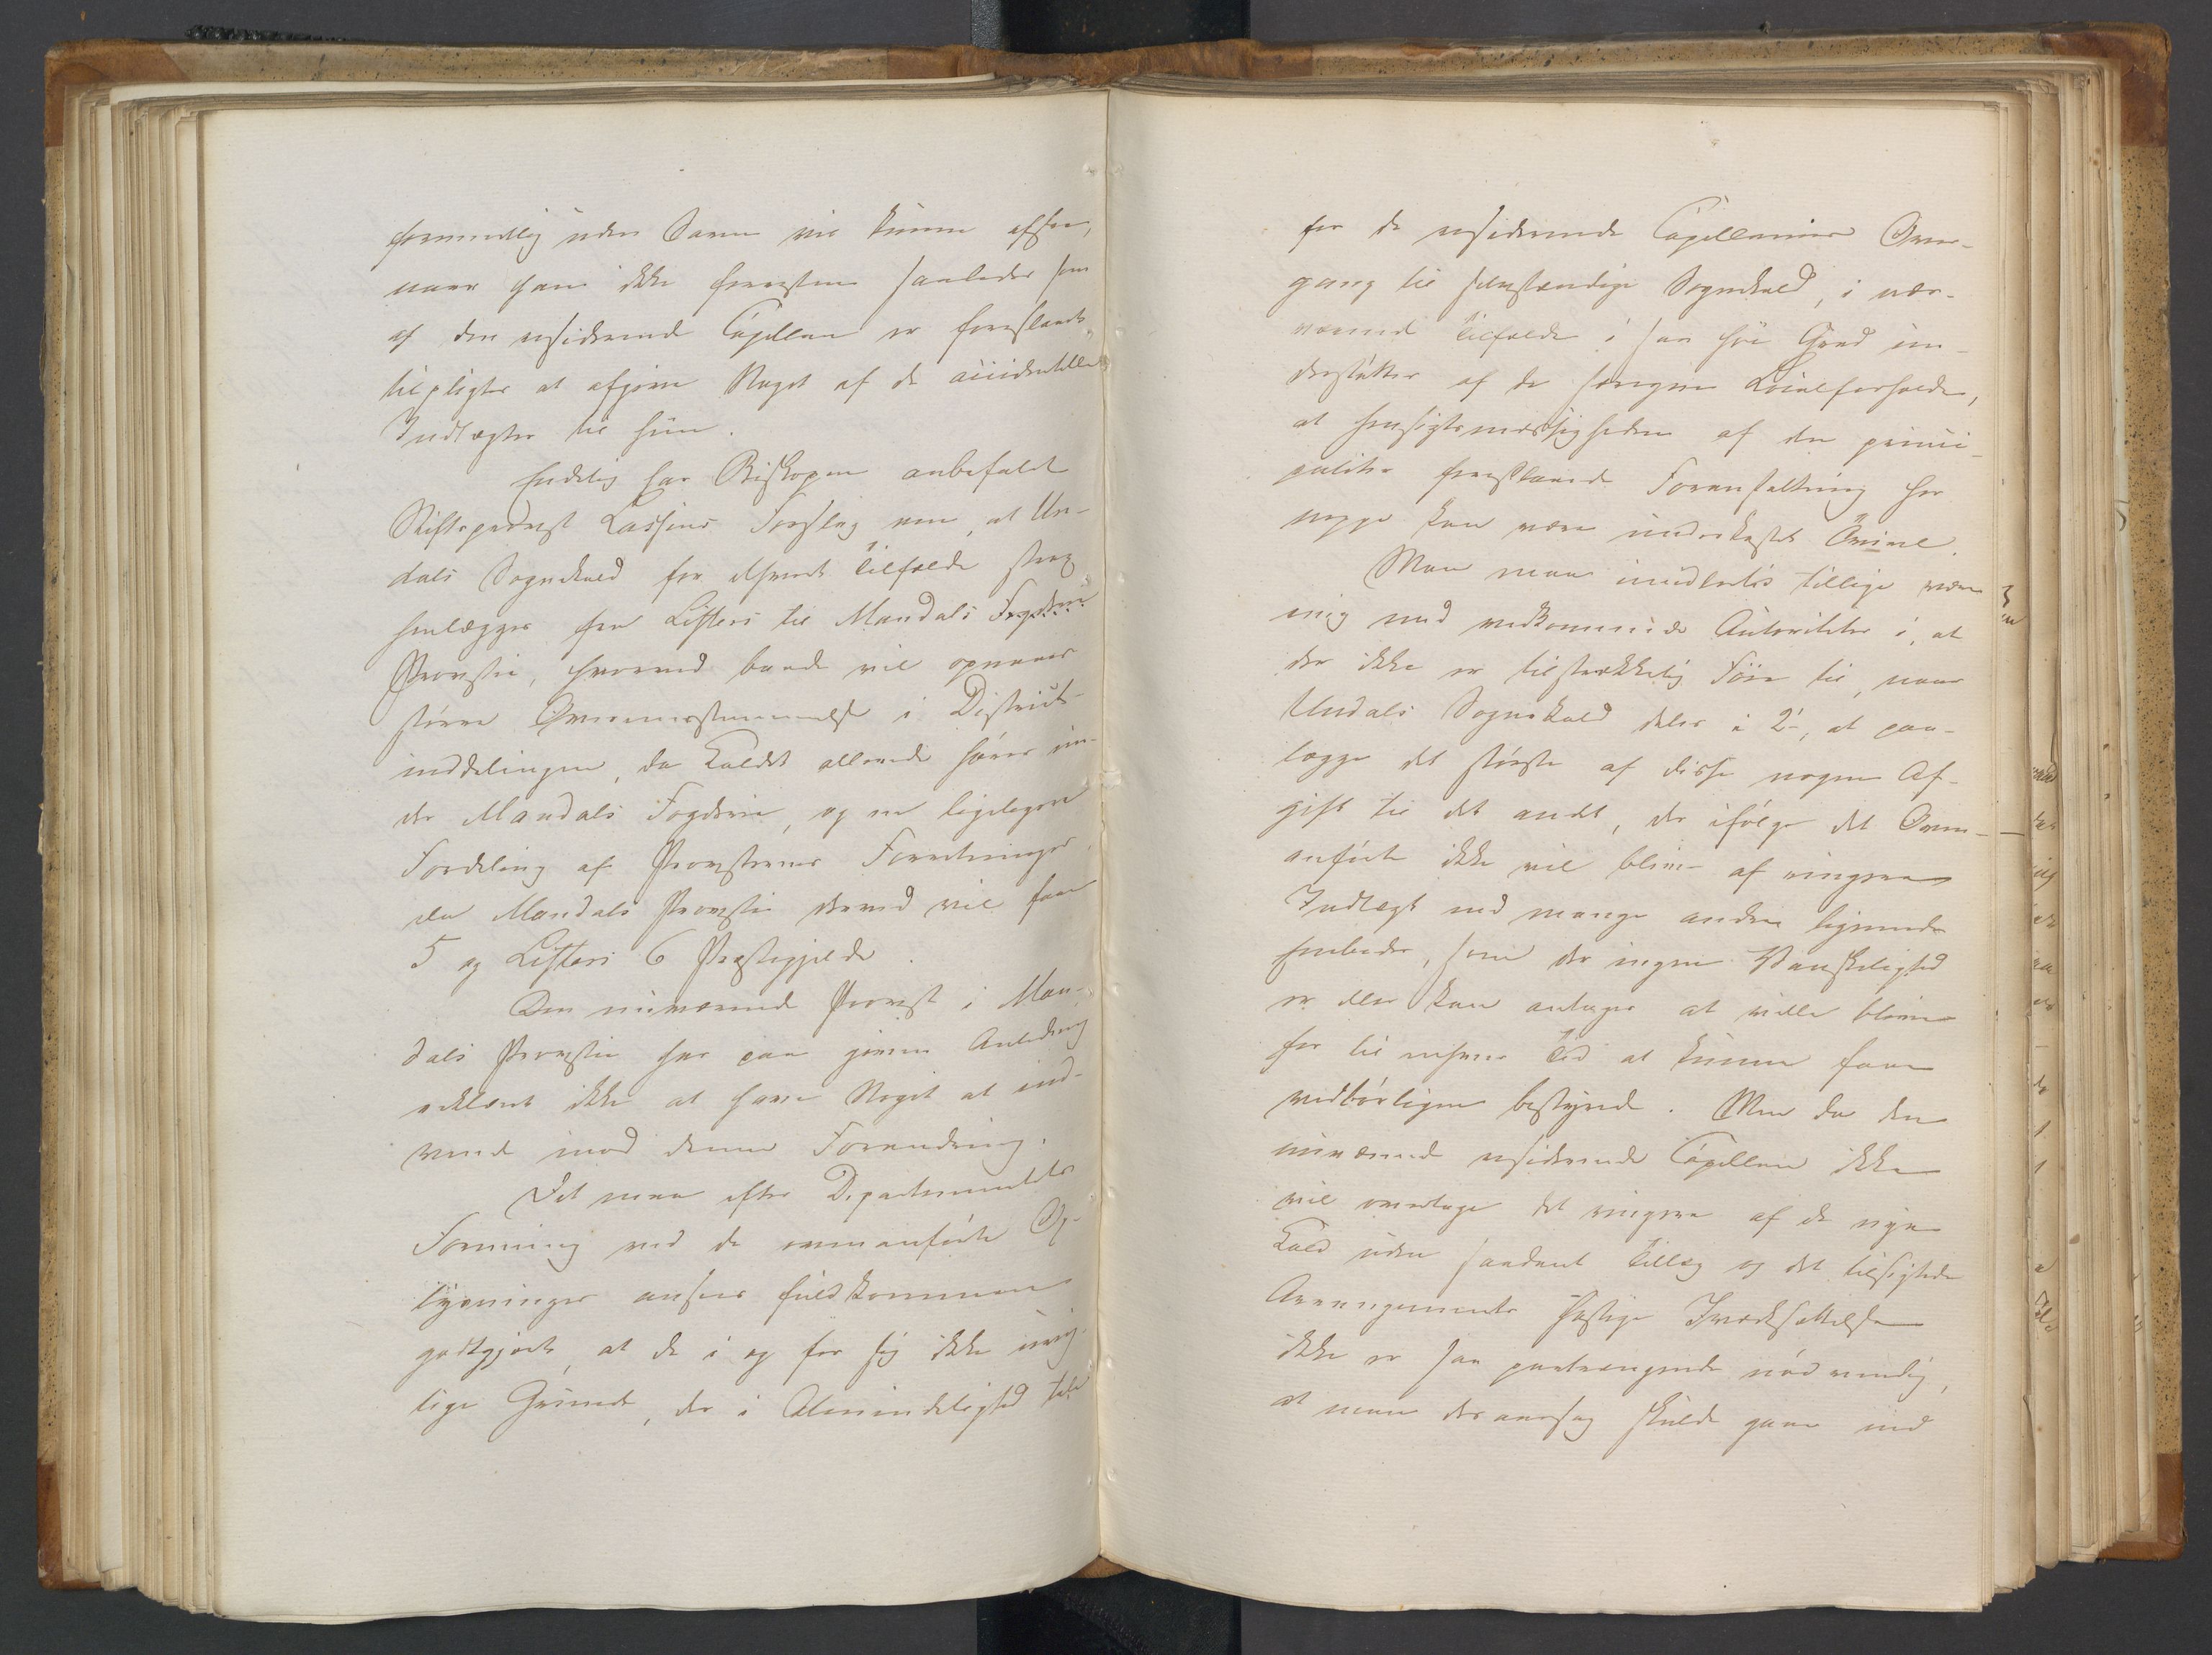 formentlig uden Savn vil kunne afsees,
naar han ikke forresten saaledes som
af den residerende Capellan er foreslaaet,
tilpligtes at afgive Noget af de accidentelle
Indtægter til ham.
Endelig har Biskopen anbefalet
Stiftsprovst Lassens Forslag om, at Un-
dals Sognekald for ethvert Tilfælde strax
henlægges fra Listers til Mandals Fogderie
Provstie, hvorved baade vil opnaaes
større Overeensstemmelse i District-
inddelingen, da Kaldet allerede hører un-
der Mandals Fogderie, og en ligeligere
Fordeling af Provsternes Forretninger,
da Mandals Provstie derved vil faae
5 og Listers 6 Præstegjelde.
Den nuværende Provst i Man-
dals Provstie har paa given Anledning
erklæret ikke at have Noget at ind-
vende imod denne Forandring.
Det maa efter Departementets
Formening ved de ovenanførte Op-
lysninger ansees fuldkommen
godtgjort, at de i og for sig ikke uvig-
tige Grunde, der i Almindelighed tale
for de residerende Capellaniers Over-
gang til selvstændige Sognekald, i nær-
værende Tilfælde i saa høi Grad un-
derstøttes af de særegne Localforholde,
at Hensigtsmæssigheden af den princi-
paliter foreslaaede Foranstaltning her
neppe kan være underkastet Tvivl.
Man maa imidlertid tillige være
enig med vedkommende Autoriteter i, at
der ikke er tilstrækkelig Føie til, naar
Undals Sognekald deles i 2, at paa-
lægge det største af disse nogen Af-
gift til det andet, der ifølge det Oven-
anførte ikke vil blive af ringere
Indtægt end mange andre lignende
Embeder, som der ingen Vanskelighed
er eller kan antages at ville blive
for til enhver Tid at kunne faae
vedbørligen bestyrede. Men da den
nuværende residerende Capellan ikke
vil modtage det ringere af de nye
Kald uden saadant Tillæg og det tilsigtede
Arrangements hastige Iværksættelse
ikke er saa paatrængende nødvendig,
at man deraarsag skulde gaae ind